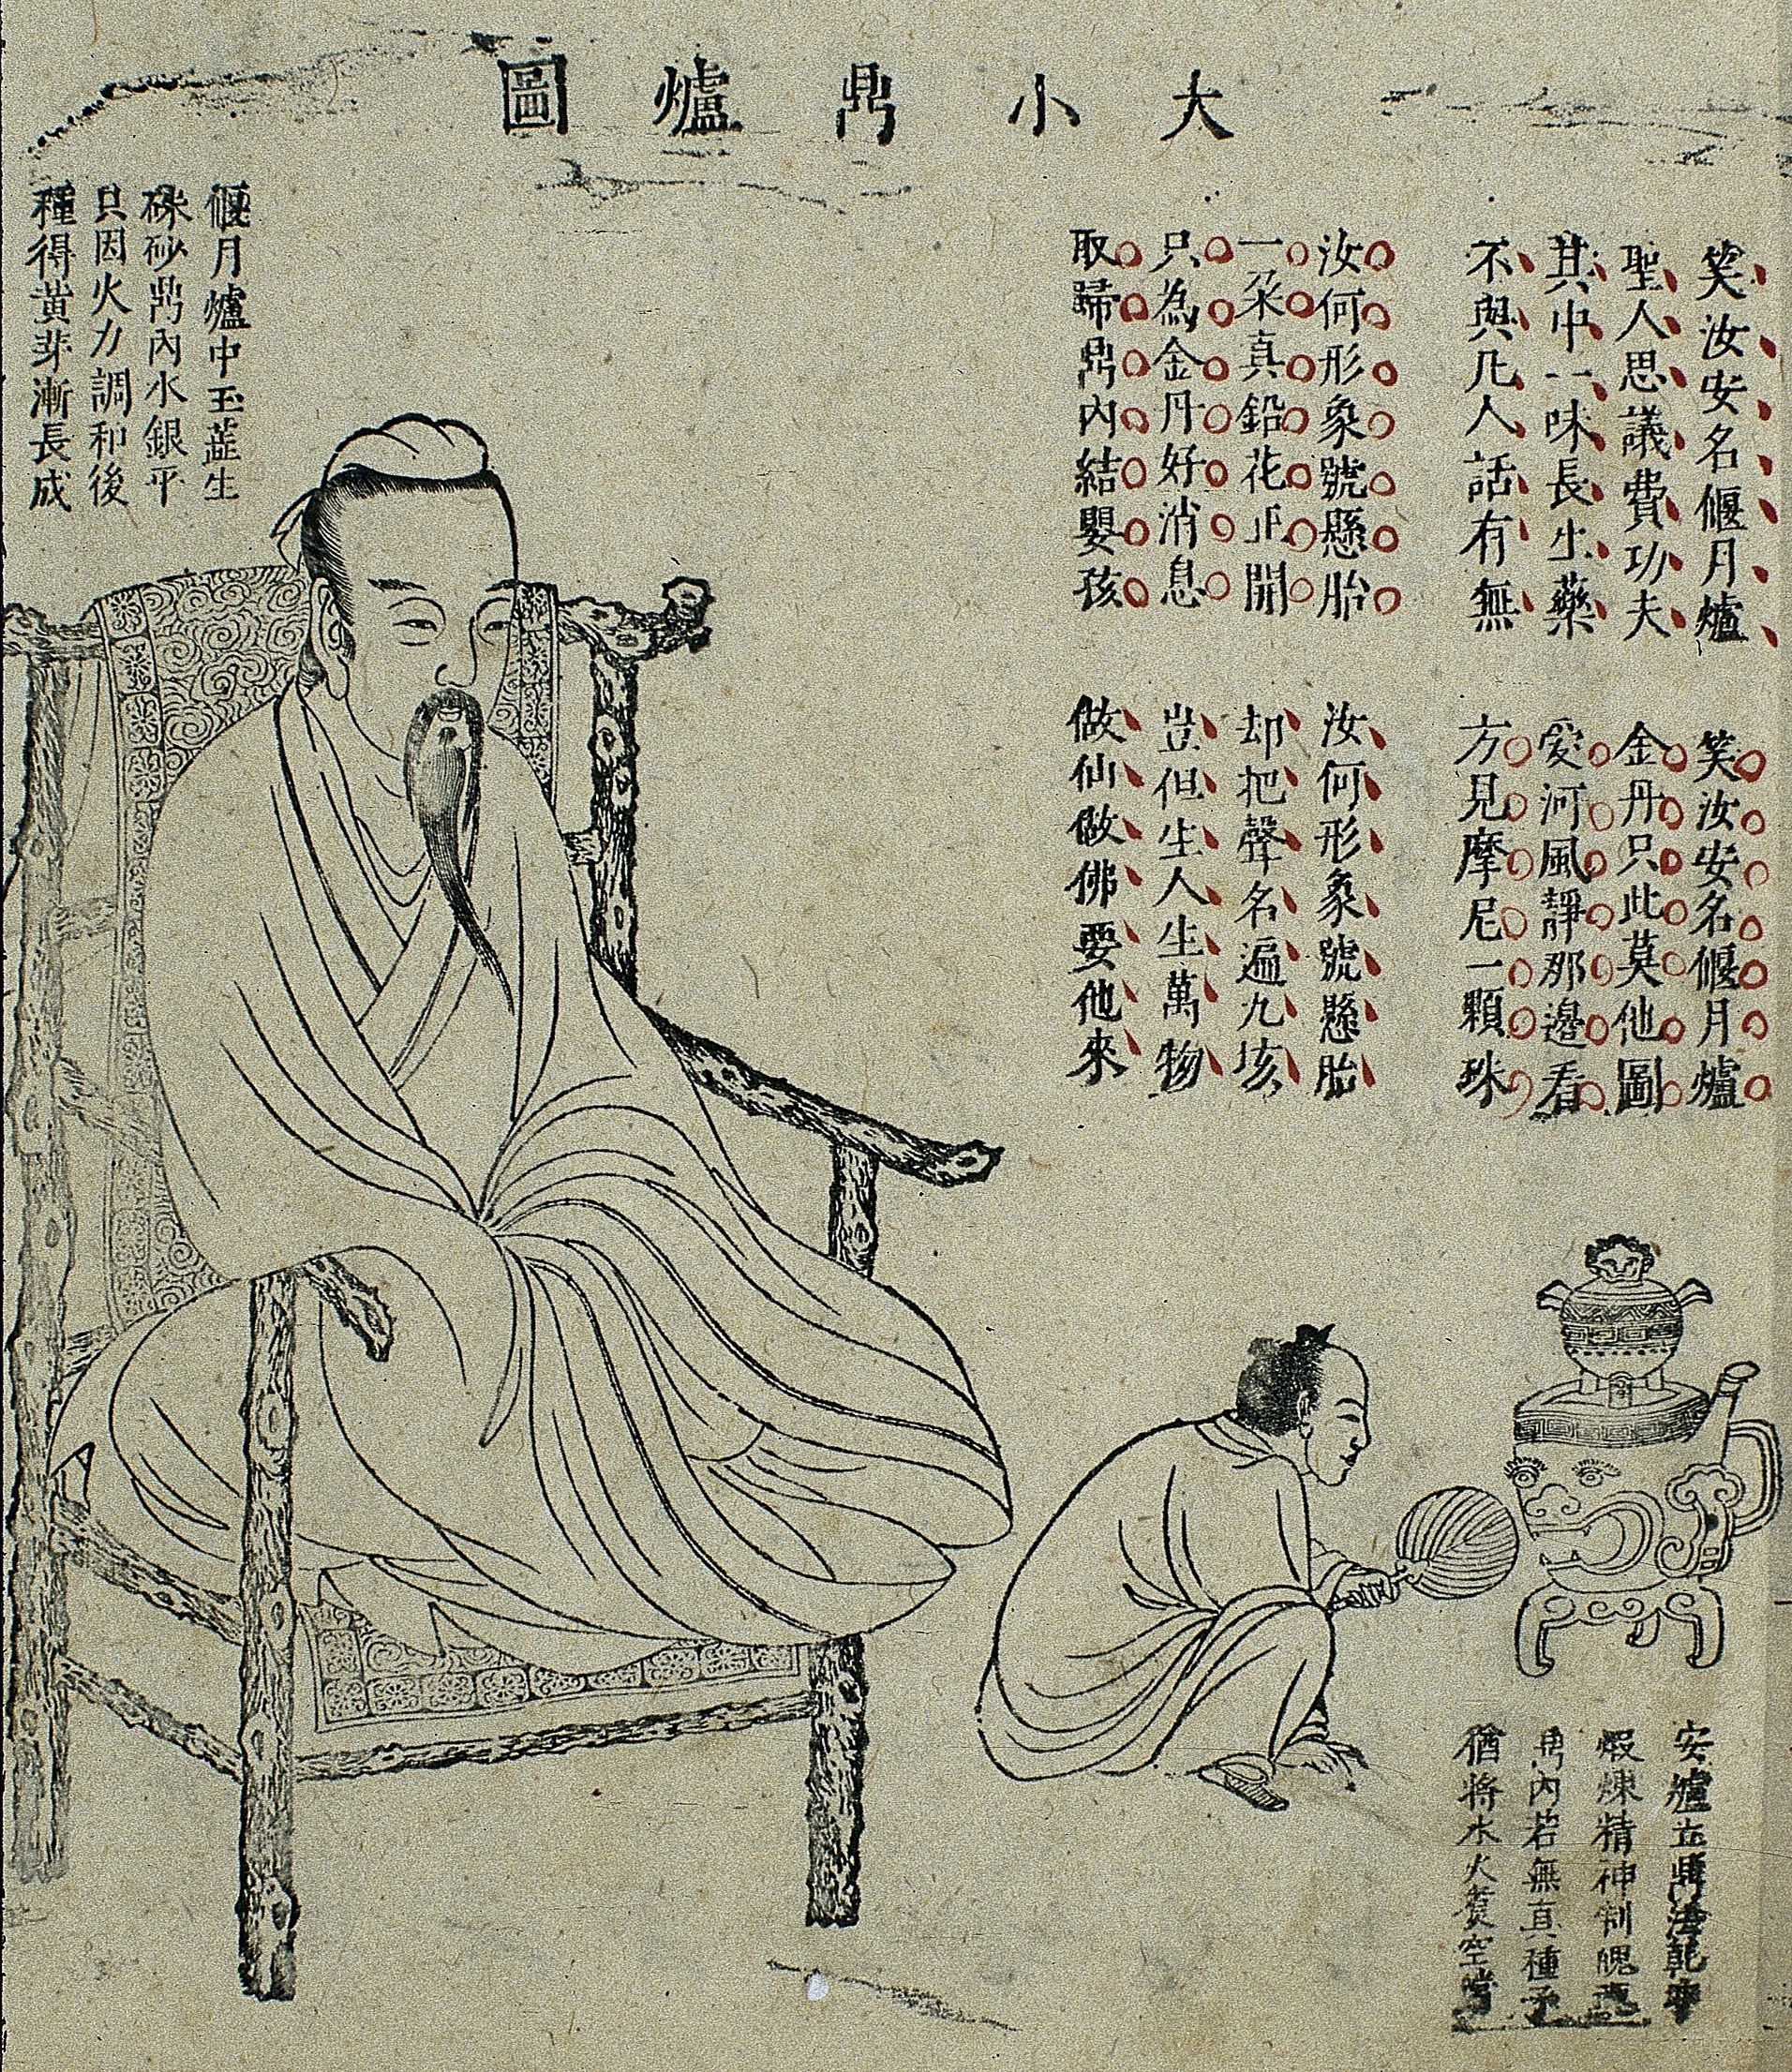 大小鼎爐圖
笑汝安名偃月爐
聖人思議費功夫
其中一味長生藥
不與凡人話有無
笑汝安名偃月爐
金丹只此莫他圖
愛河風靜那邊看
方見摩尼一顆珠
汝何形象號懸胎
一朶真鉛花正開
只為金丹好消息
取歸鼎內結嬰孩
汝何形象號懸胎
却把聲名遍九垓
豈但生人生萬物
做仙做佛要他來
偃月爐中玉蕋生
硃砂鼎內水銀平
只因火力調和後
種得黃芽漸長成
安爐立鼎法乾坤
煆煉精神制魄魂
鼎內若無真種子
猶將水火煑空鐺